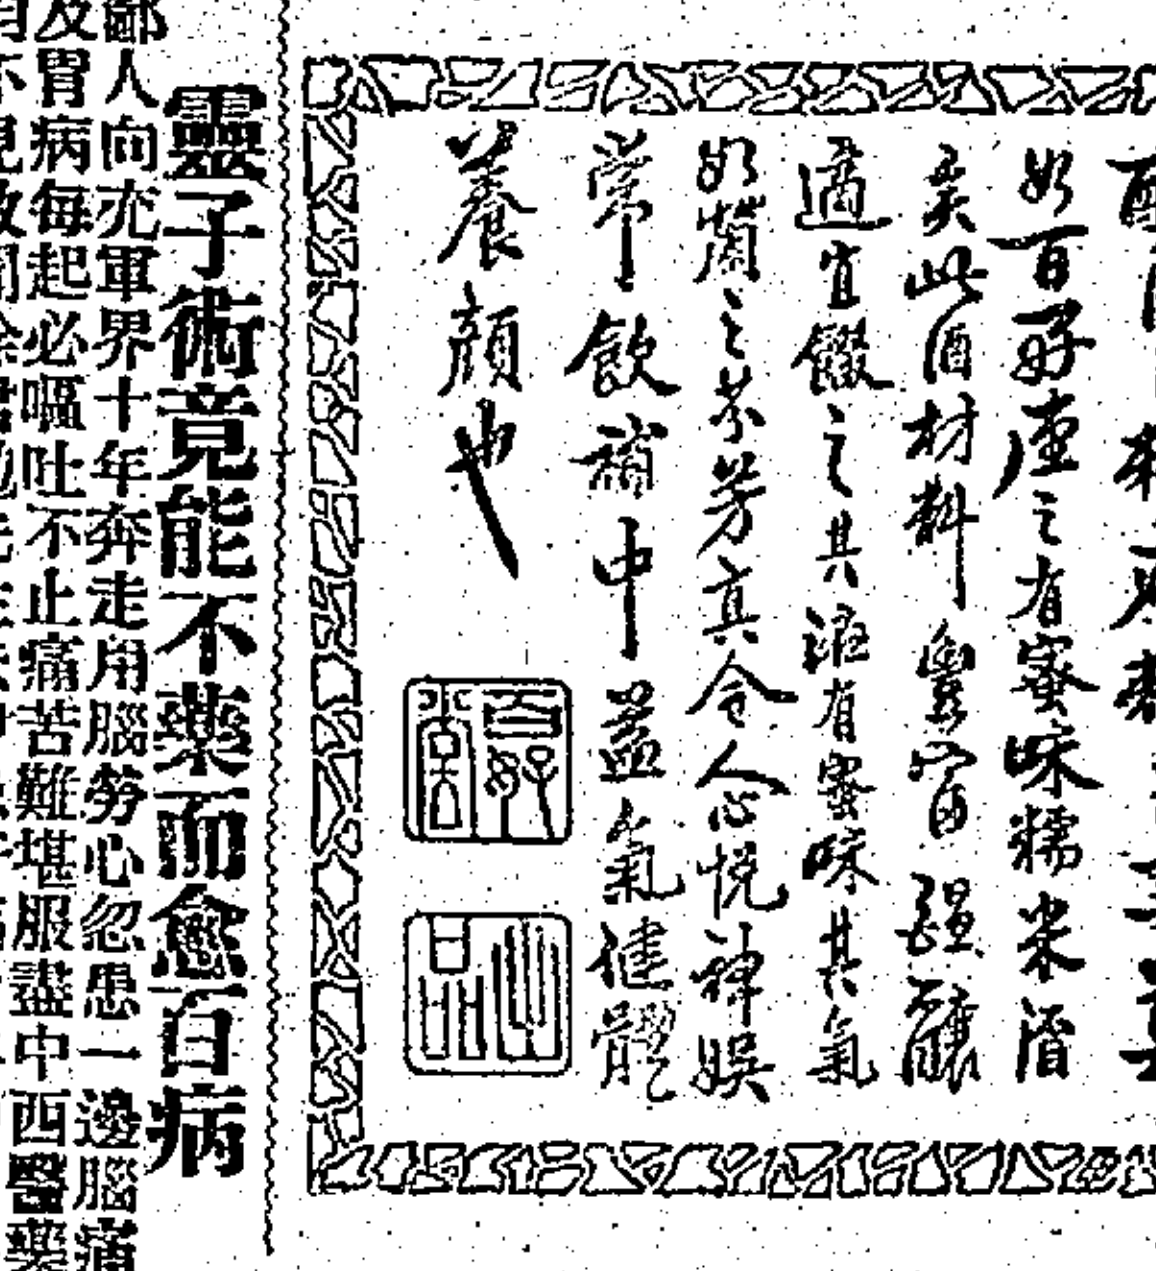 如百好堂之有蜜味糯米酒
矣此酒材料豐富醖釀
適宜餟之其液有蜜味其氣
如蘭之芬芳真令人心悅神娛
常飲補中益氣健體
養顏也
百好
品
靈子術竟能不藥而愈百病
鄙人向充軍界十年奔走用腦勞心忽患一邊腦痛
及胃病每起必嘔吐不止痛苦難堪服盡中西醫藥